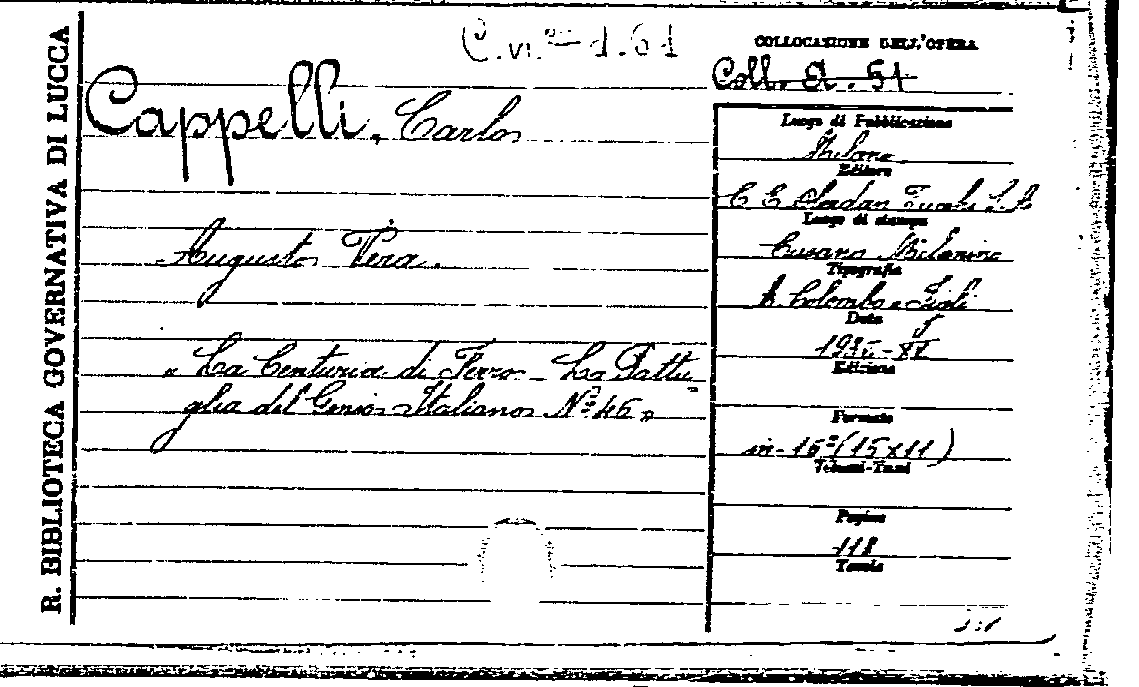 R. BIBLIOTECA GOVERNATIVA DI LUCCA
COLLOCAZIONE DELL'OPERA
Coll. A. 51
Cappelli, Carlo
Augusto Vera.
" La Centuria di Ferro - La Pattu-
glia del Genio Italiano N.º 46 "
Luogo di Pubblicazione
Milano
Editore
Luogo di stampa
Cusano Milanino
Tipografia
A. Colombo e Figli
Data
Edizione
Formato
in-16º (15x11)
Volumi-Tomi
Pagine
118
Tavole